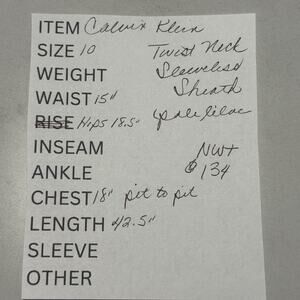 ITEM Calvin Klein
SIZE 10 Twist Neck
WEIGHT Sleeveless
WAIST 15" Sheath
RISE Hips 18.5" pale lilac
INSEAM NWT
ANKLE 134
CHEST 18" pit to pit
LENGTH 42.5"
SLEEVE
OTHER